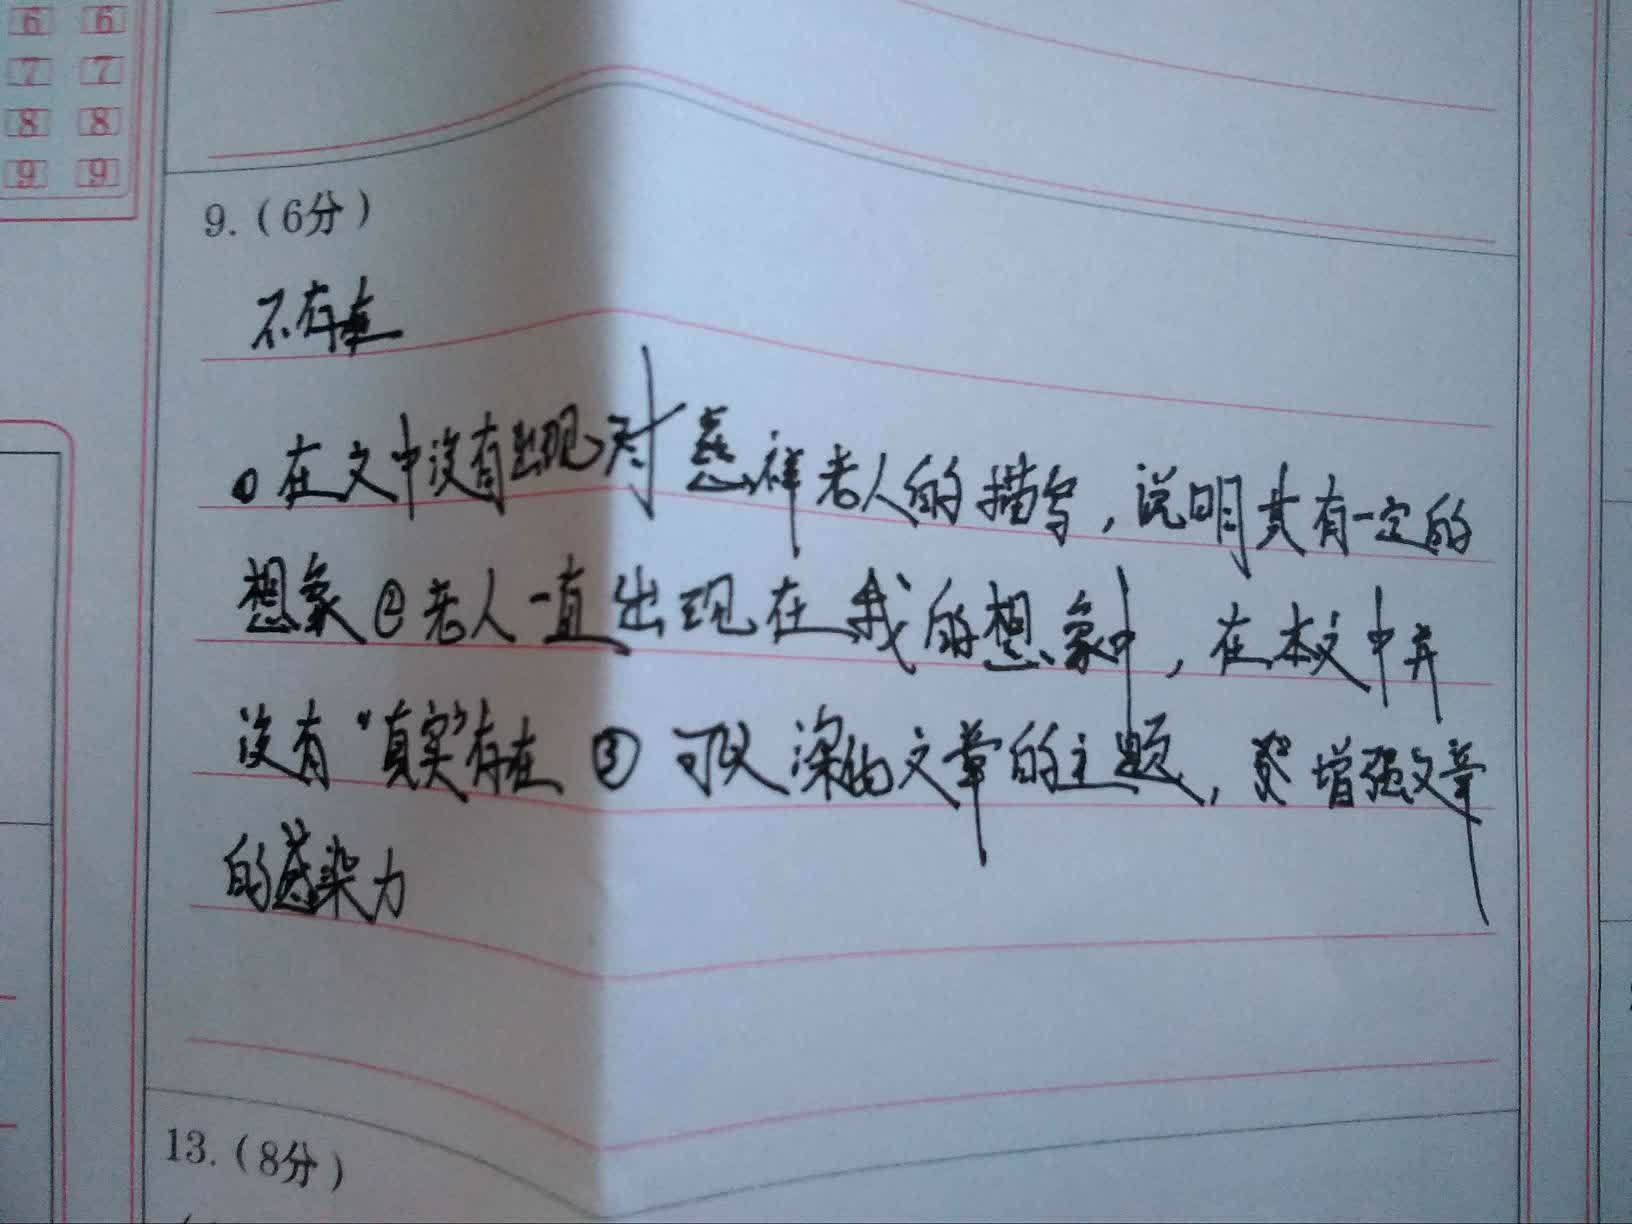 6 6
7 7
8 8
9 9
9.(6分)
不存在
①在文中没有出现对慈祥老人的描写,说明其有一定的
想象②老人一直出现在我的想象中,在本文中并
没有“真实”存在③可以深化文章的主题,增强文章
的感染力
13.(8分)